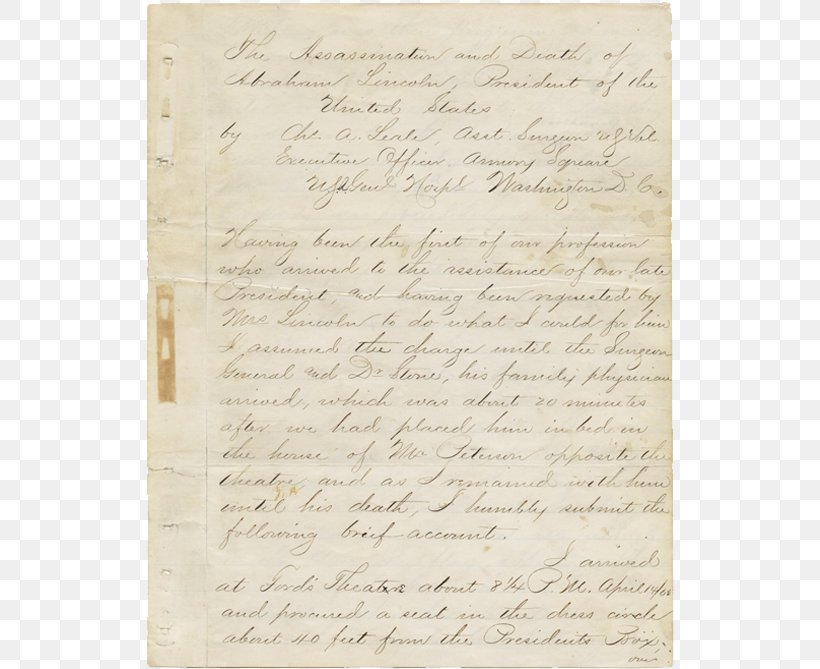 The Assassination and Death of
Abraham Lincoln, President of the
United States
by Chs. A. Leale, Asst. Surgeon U.S. Vol.
Executive Officer Armory Square
U.S. Genl Hospl Washington D.C.
Having been the first of our profession
who arrived to the assistance of our late
President, and having been requested by
Mrs Lincoln to do what I could for him
I assumed the charge until the Surgeon
General and Dr Stone, his family physician
arrived, which was about 20 minutes
after we had placed him in bed in
the house of Mr Peterson opposite the
theatre, and as I remained with him
until his death, I humbly submit the
following brief account.
I arrived
at Ford's Theatre about 8¼ P.M. April 14/65
and procured a seat in the dress circle
about 40 feet from the Presidents Box;
over